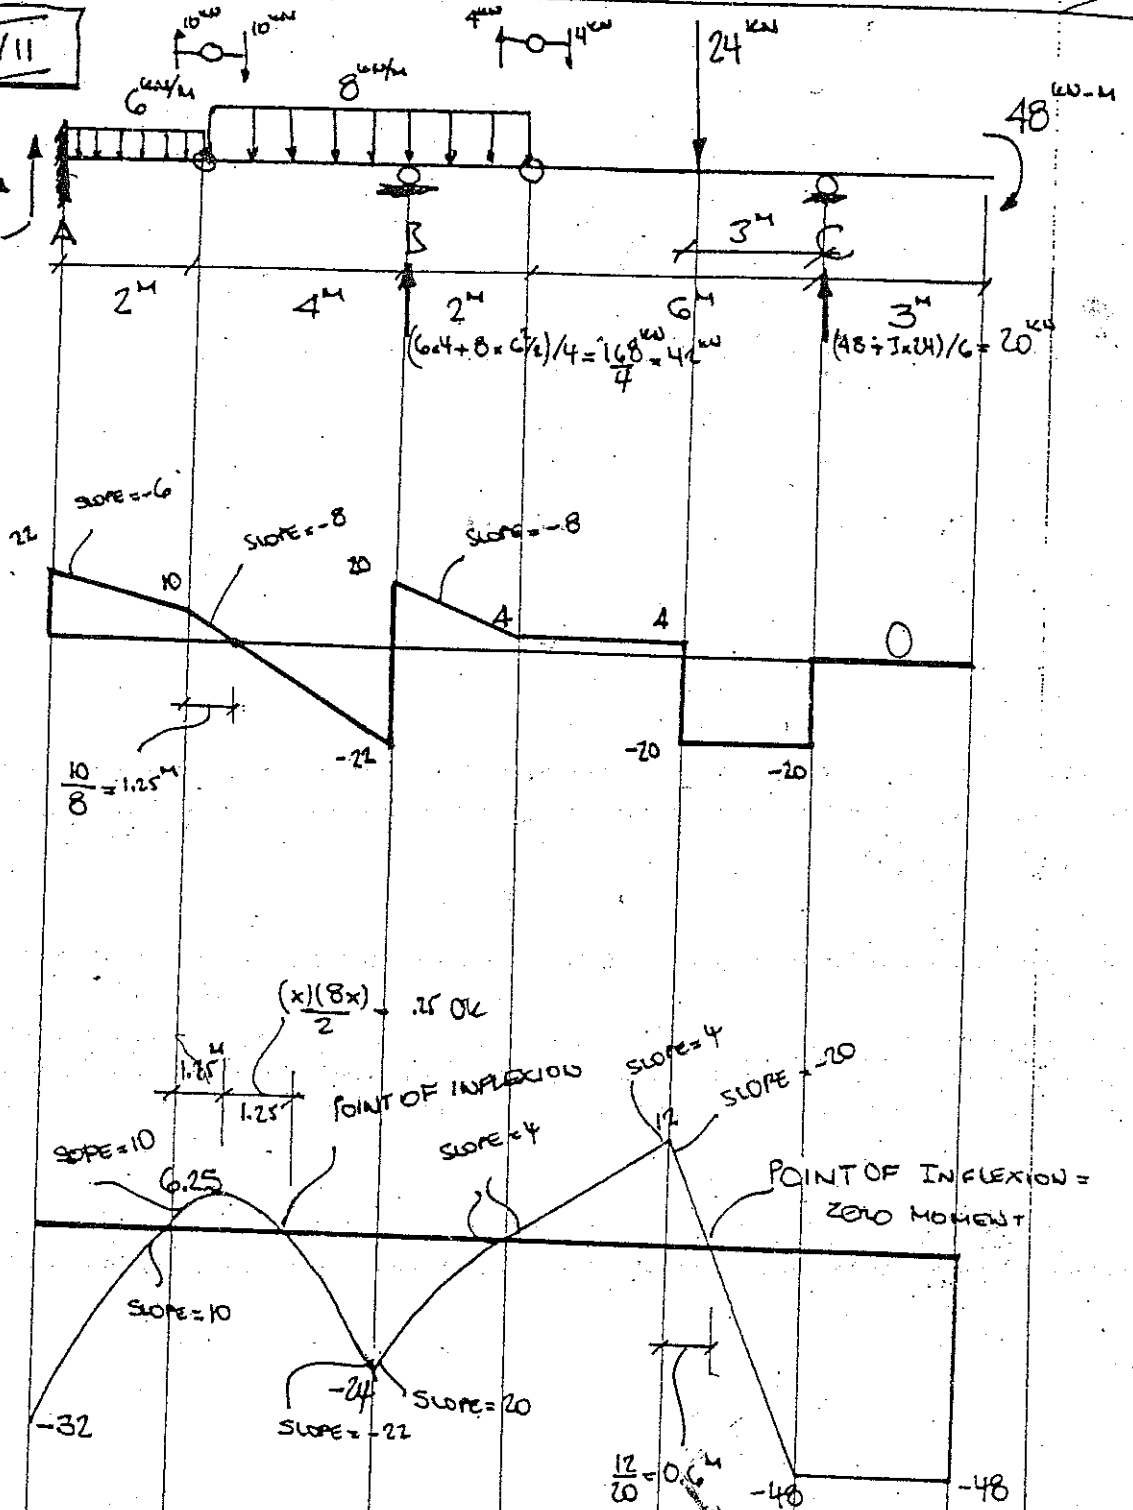 /11
10 KN
10 KN
4 KN
4 KN
24 KN
6 KN/M
8 KN/M
48 KN-M
A
B
3 M
C
2 M
4 M
2 M
6 M
3 M
(6x4+8x6²/2)/4 = 168 KN/4 = 42 KN
(48+3x24)/6 = 20 KN
SLOPE=-6
SLOPE=-8
SLOPE=-8
22
10
20
4
4
0
-22
-20
-20
10/8 = 1.25 M
(x)(8x)/2 = .25 OK
1.25 M
1.25
POINT OF INFLEXION
SLOPE=4
SLOPE=-20
12
SLOPE=10
6.25
SLOPE=4
POINT OF INFLEXION =
ZERO MOMENT
SLOPE=10
-32
-24
SLOPE=20
SLOPE=-22
12/20 = 0.6 M
-48
-48